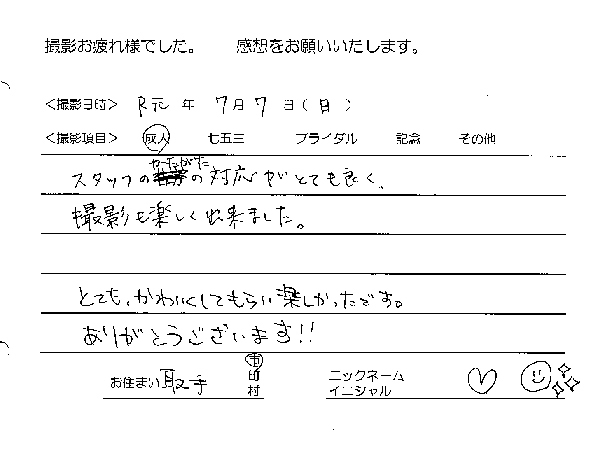 撮影お疲れ様でした。 感想をお願いいたします。
<撮影日付> R元 年 7月7日(日)
<撮影項目> 成人 七五三 ブライダル 記念 その他
スタッフのかたがたの対応がとても良く、
撮影も楽しく出来ました。
とても、かわいくしてもらい楽しかったです。
ありがとうございます!!
お住まい 取手 市町村 ニックネーム イニシャル